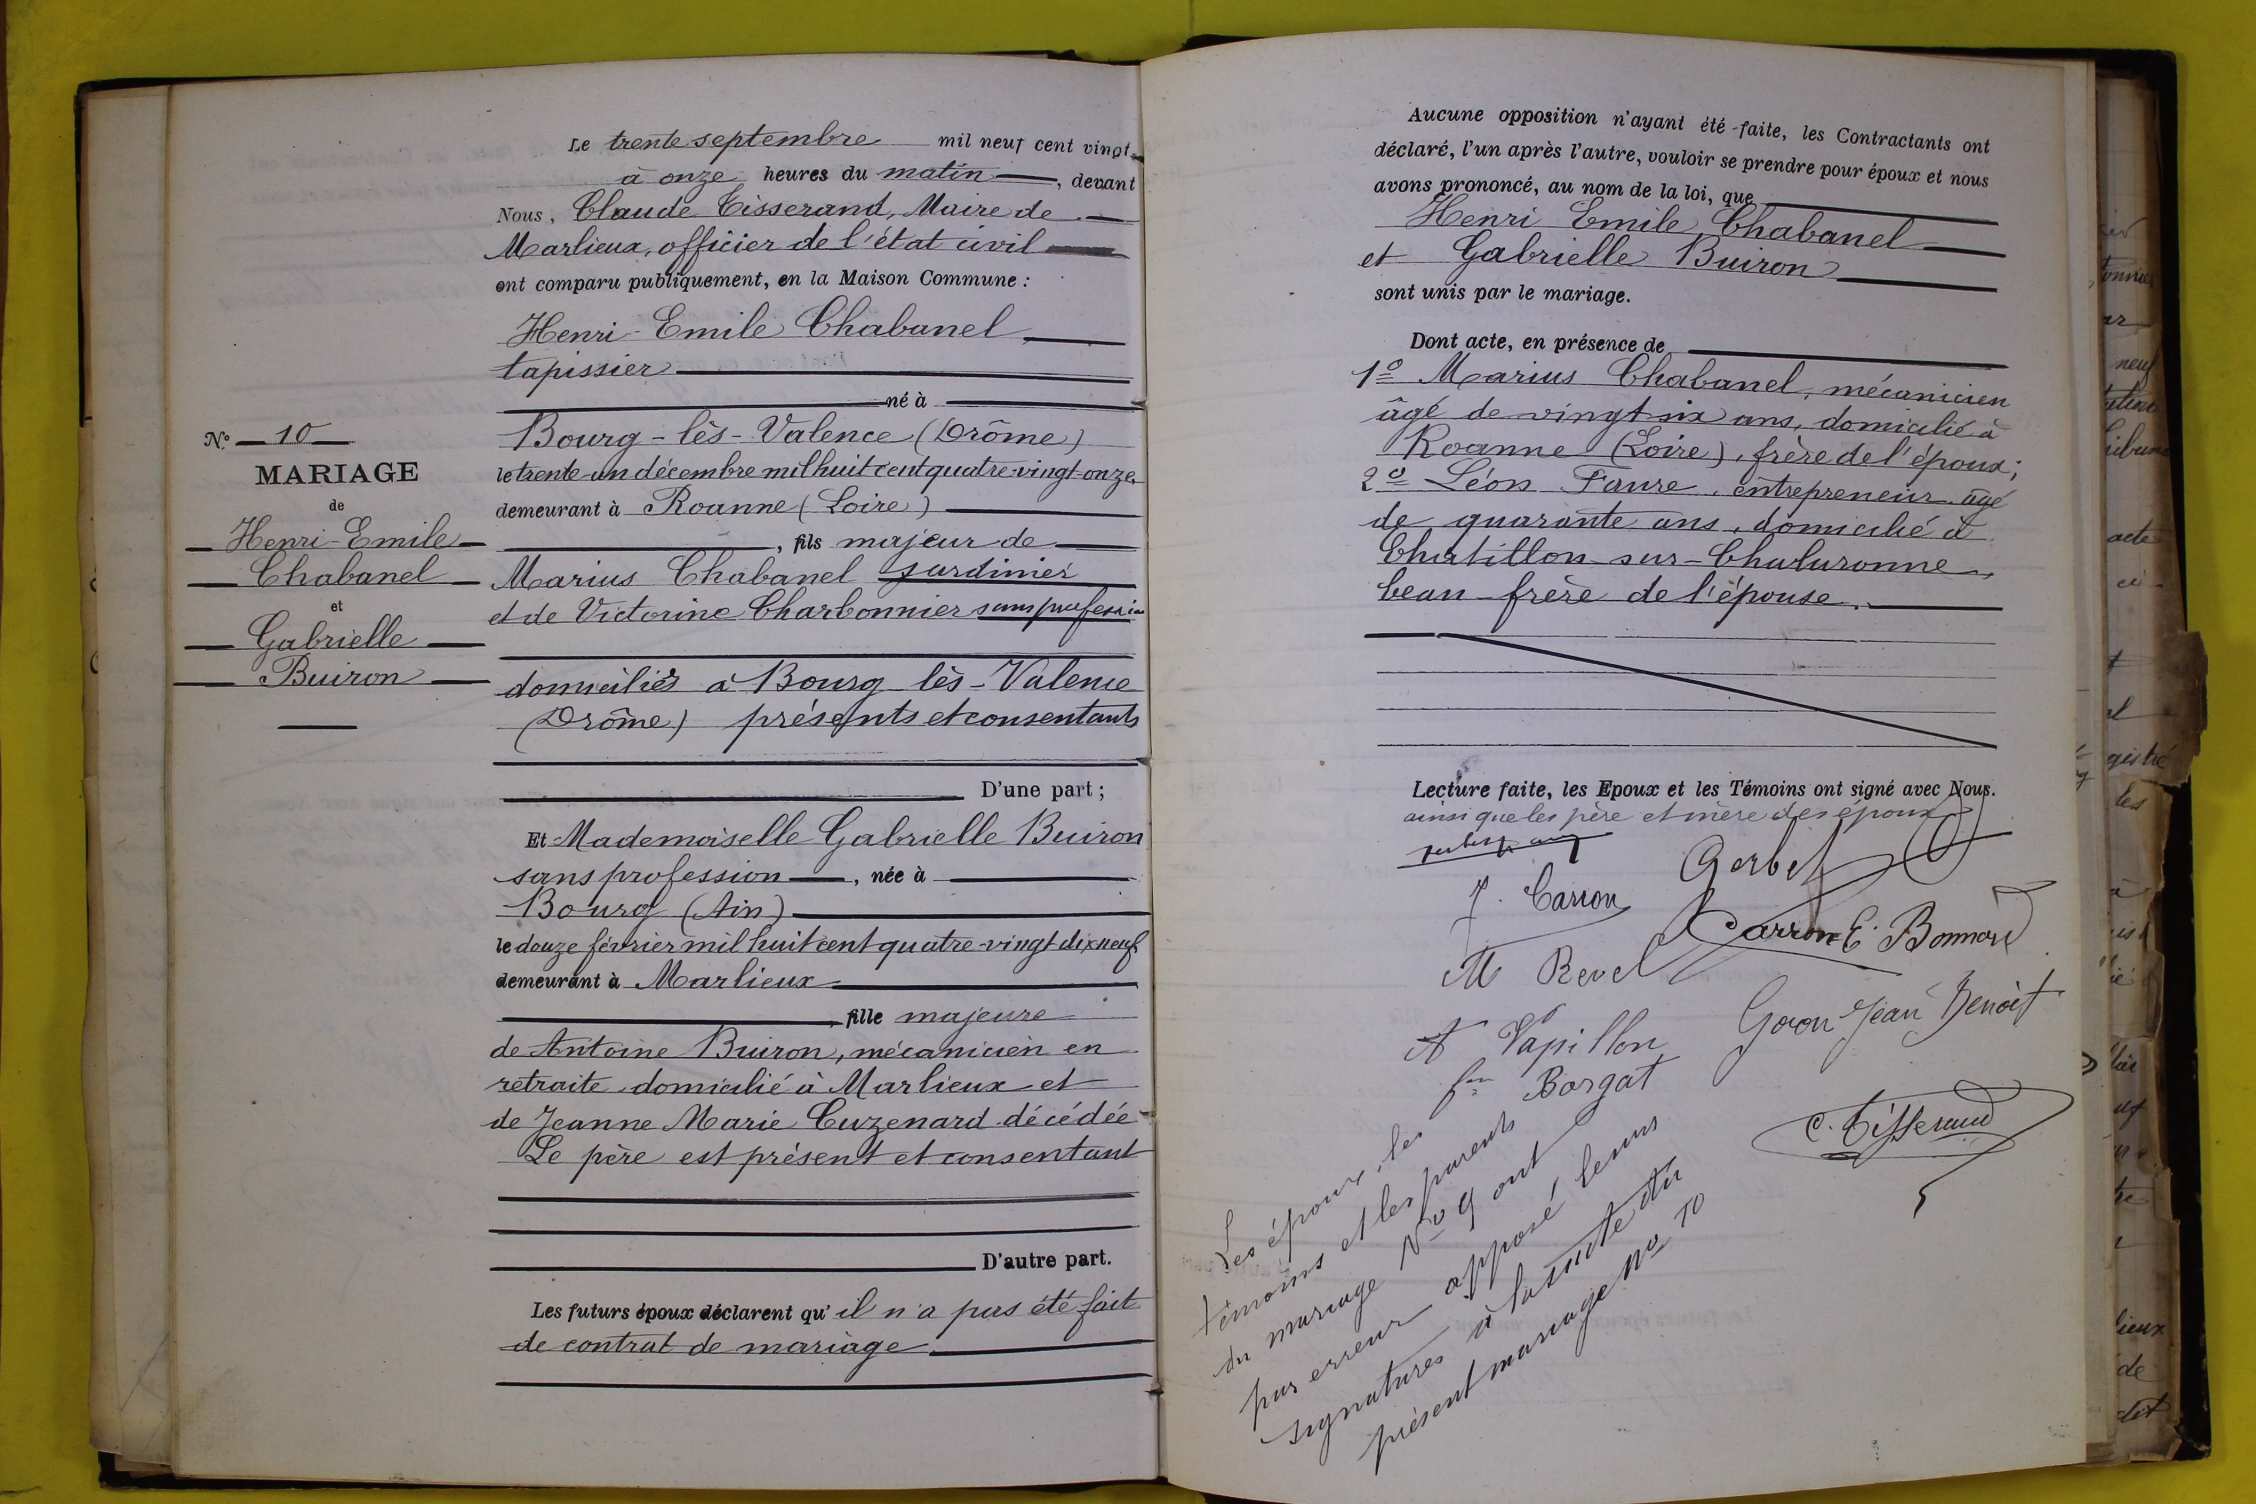 Le trente septembre mil neuf cent vingt
à onze heures du matin, devant
Nous, Claude Tisserand, Maire de
Marlieux, officier de l'état civil
ont comparu publiquement, en la Maison Commune :
Henri-Emile Chabanel
tapissier
né à
Bourg-lès-Valence (Drôme)
le trente-un décembre mil huit cent quatre-vingt-onze
demeurant à Roanne (Loire)
, fils majeur de
Marius Chabanel jardinier
et de Victorine Charbonnier sans profession
domiciliés à Bourg-lès-Valence
(Drôme) présents et consentants
D'une part ;
Et Mademoiselle Gabrielle Buiron
sans profession, née à
Bourg (Ain)
le douze février mil huit cent quatre-vingt dix neuf
demeurant à Marlieux
, fille majeure
de Antoine Buiron, mécanicien en
retraite domicilié à Marlieux et
de Jeanne Marie Cuzenard décédée
Le père est présent et consentant
D'autre part.
Les futurs époux déclarent qu'il n'a pas été fait
de contrat de mariage
N° 10
MARIAGE
de
Henri-Emile
Chabanel
et
Gabrielle
Buiron
Aucune opposition n'ayant été faite, les Contractants ont
déclaré, l'un après l'autre, vouloir se prendre pour époux et nous
avons prononcé, au nom de la loi, que
Henri Emile Chabanel
et Gabrielle Buiron
sont unis par le mariage.
Dont acte, en présence de
1° Marius Chabanel, mécanicien
âgé de vingt six ans, domicilié à
Roanne (Loire), frère de l'époux ;
2° Léon Faure, entrepreneur âgé
de quarante ans, domicilié à
Chatillon-sur-Chalaronne,
beau-frère de l'épouse.
Lecture faite, les Epoux et les Témoins ont signé avec Nous.
ainsi que les père et mère des époux
Gerbet
J. Carron
Carron E. Bonnard
M Revel
Goron Jean Benoit
A Papillon
fne Borgat
C. Tisserand
Les époux, les
témoins et les parents
du mariage N° 9 ont
par erreur apposé leurs
signatures à la suite du
présent mariage N° 10